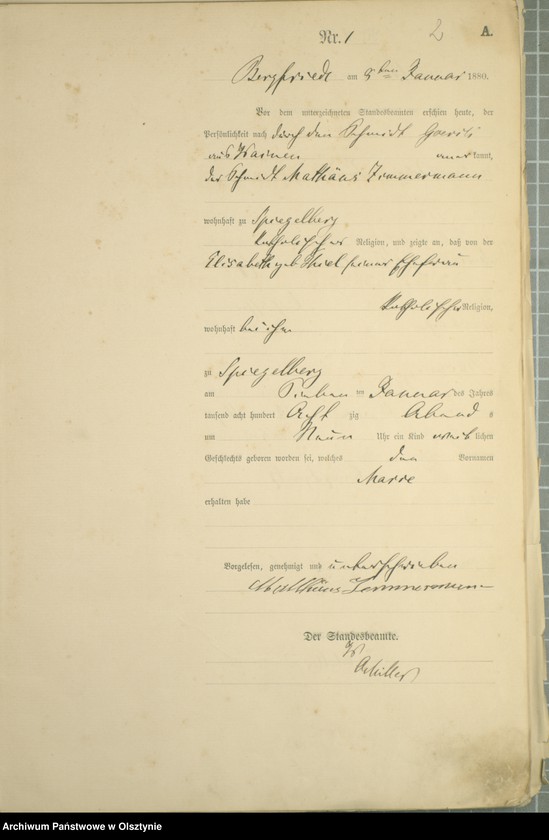 Nr. 1
2
A.
Bergfriede am 8ten Januar 1880.
Vor dem unterzeichneten Standesbeamten erschien heute, der
Persönlichkeit nach durch den Schmidt
aus kannt,
der Schmidt Mathäus Zimmermann
wohnhaft zu Spiegelberg
katholischer Religion, und zeigte an, daß von der
Elisabeth geb Thiel seiner Ehefrau
katholischer Religion,
wohnhaft bei ihm
zu Spiegelberg
am Sieben ten Januar des Jahres
tausend acht hundert Acht zig Abend s
um Neun Uhr ein Kind weib lichen
Geschlechts geboren worden sei, welches den Vornamen
Marie
erhalten habe
Vorgelesen, genehmigt und unterschrieben
Matthäus Zimmermann
Der Standesbeamte.
Archiwum Państwowe w Olsztynie